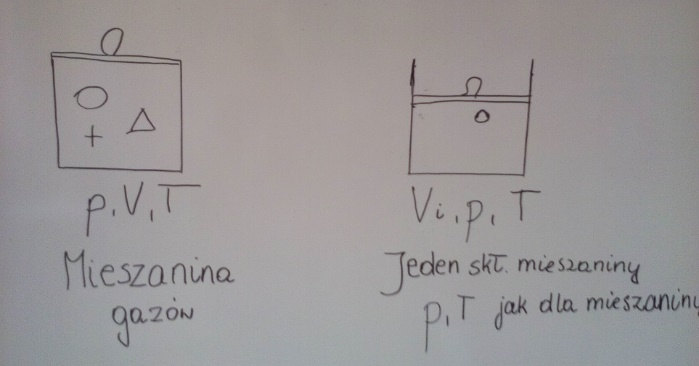 p, V, T
Mieszanina
gazów
Vi, p, T
Jeden skł. mieszaniny
p, T jak dla mieszaniny